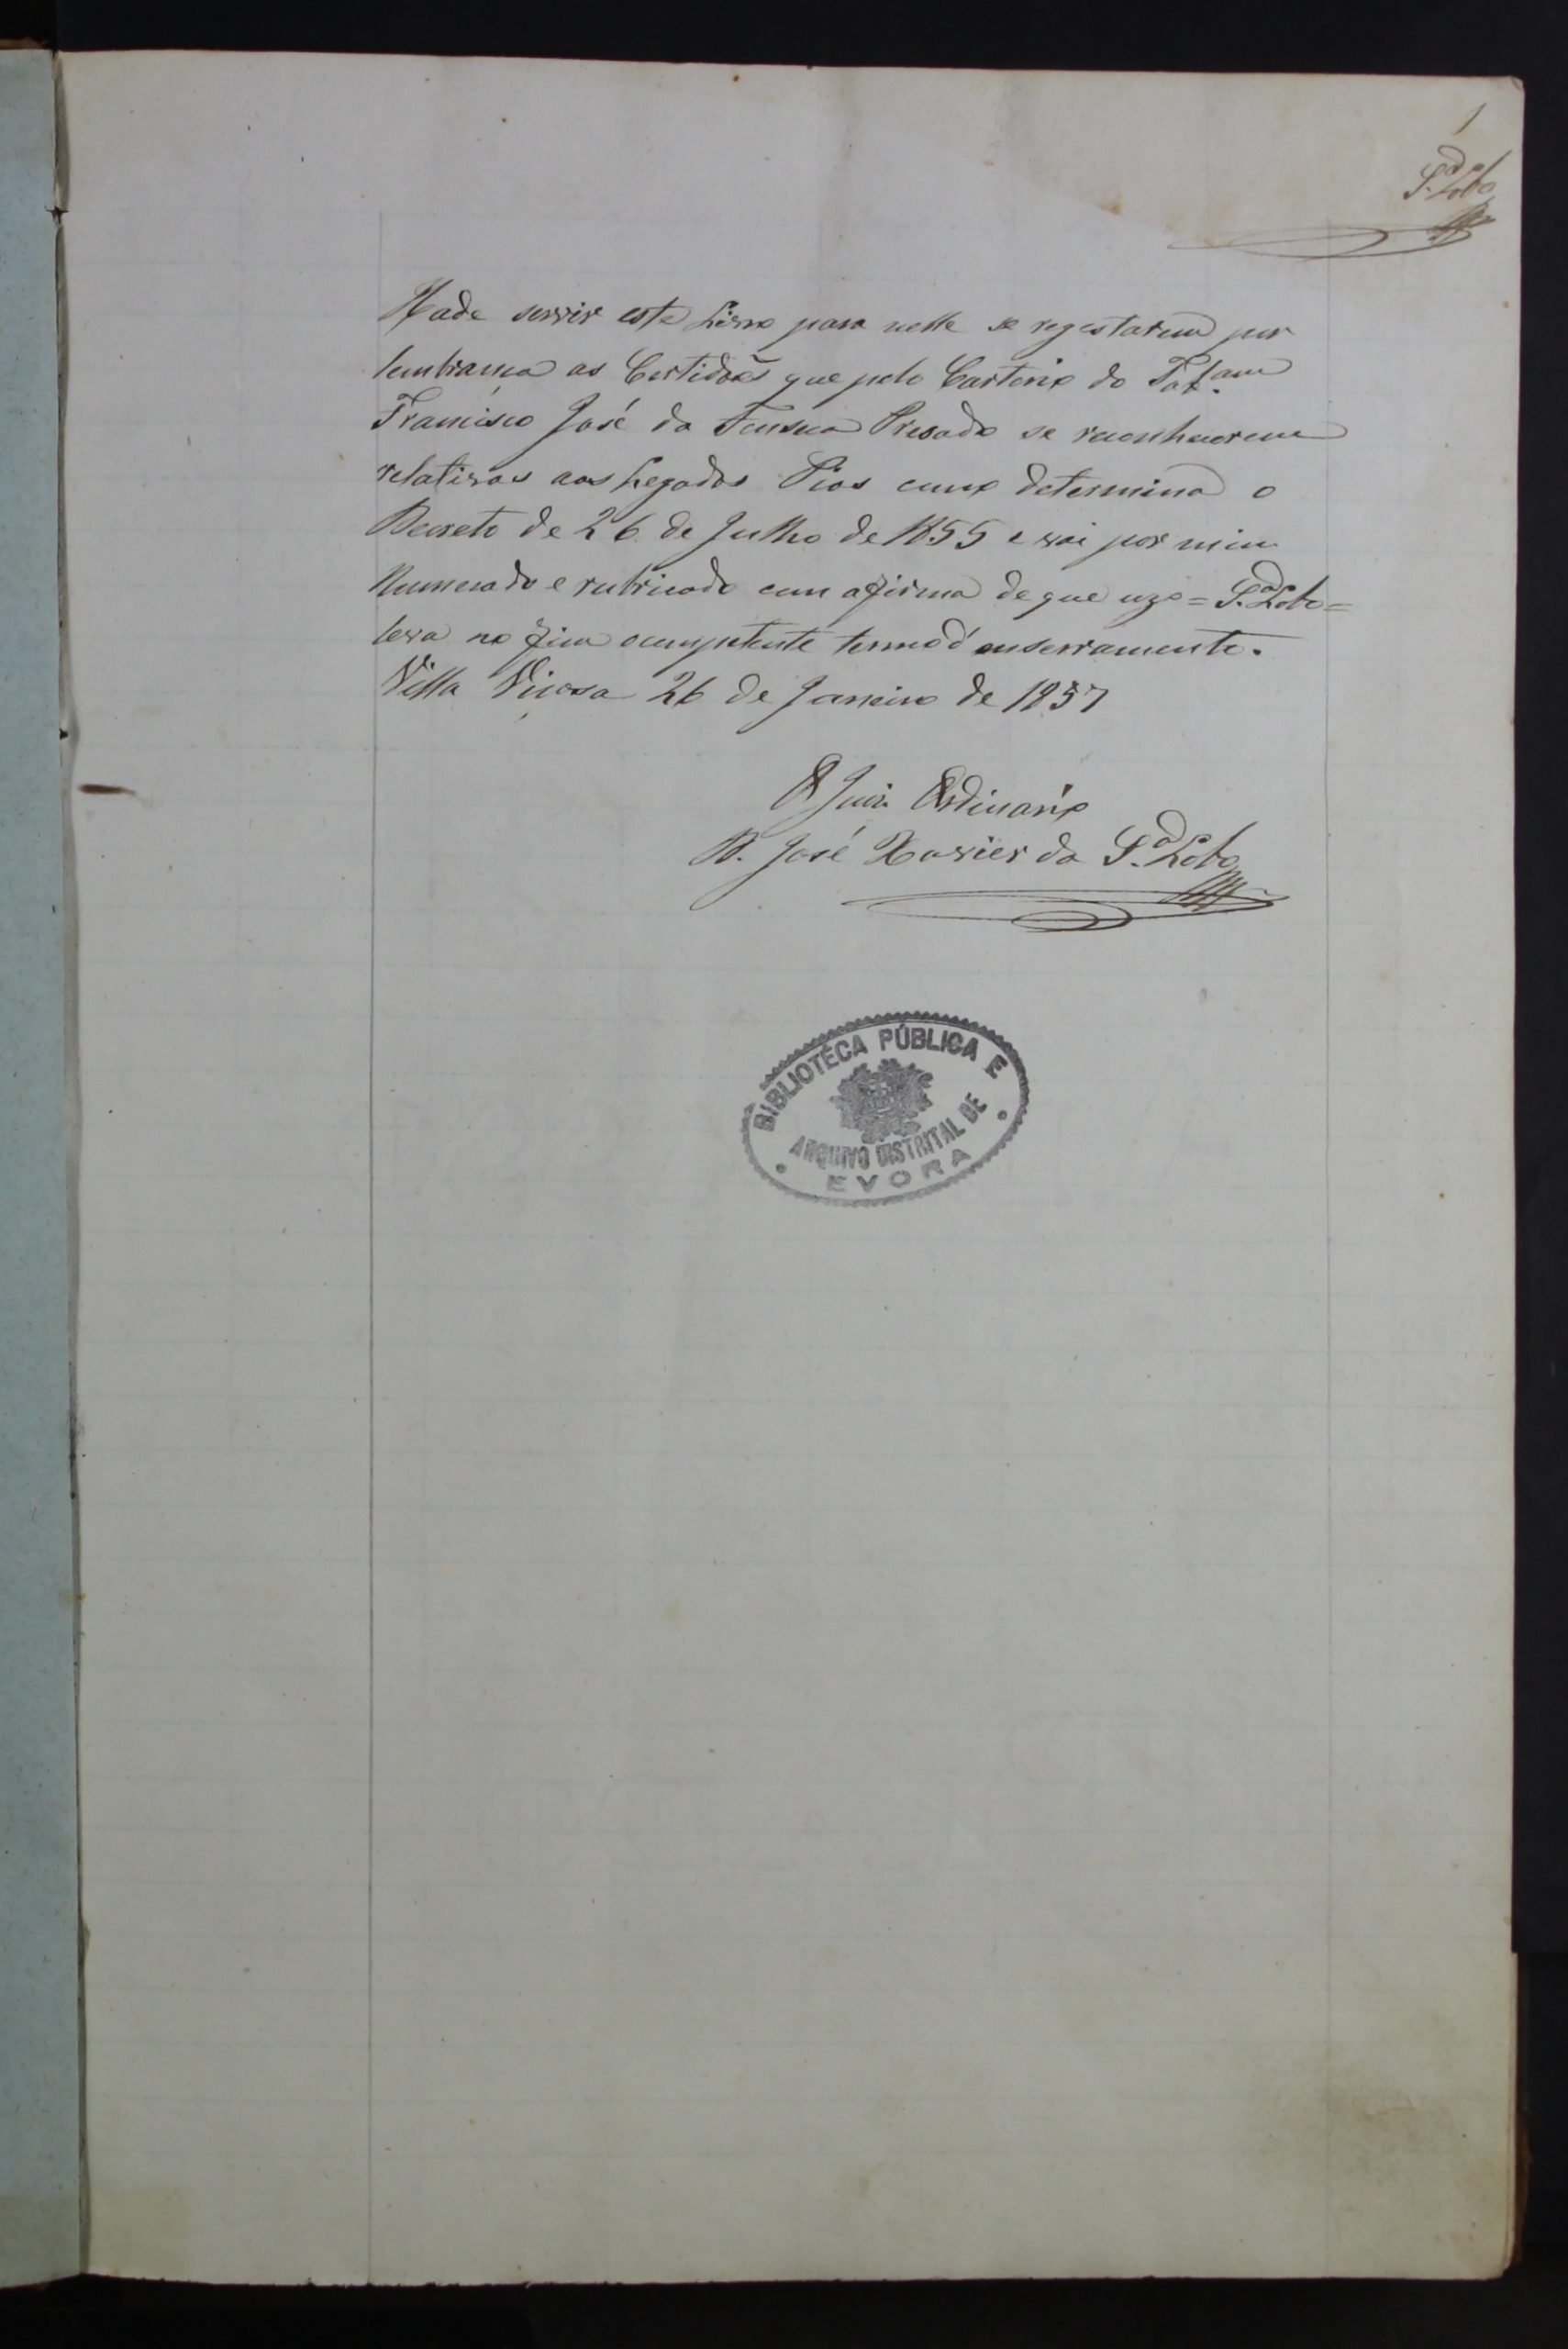 1
S.ª Lobo
Hade servir este Livro para nelle se registarem por
lembrança as Certidoẽs que pelo Cartorio do Tab.am
Francisco José da Fonseca Presado se reconhecerem
relativas aos Legados Pios como determina o
Decreto de 26 de Julho de 1855 e vai por mim
Numerado e rubricado com a firma de que uzo = S.ª Lobo =
leva no fim o competente termo d'enserramento.
Villa Viçosa 26 de Janeiro de 1857
O Juiz Ordinario
D. José Xavier da S.ª Lobo
BIBLIOTÉCA PÚBLICA E
ARQUIVO DISTRITAL DE
EVORA